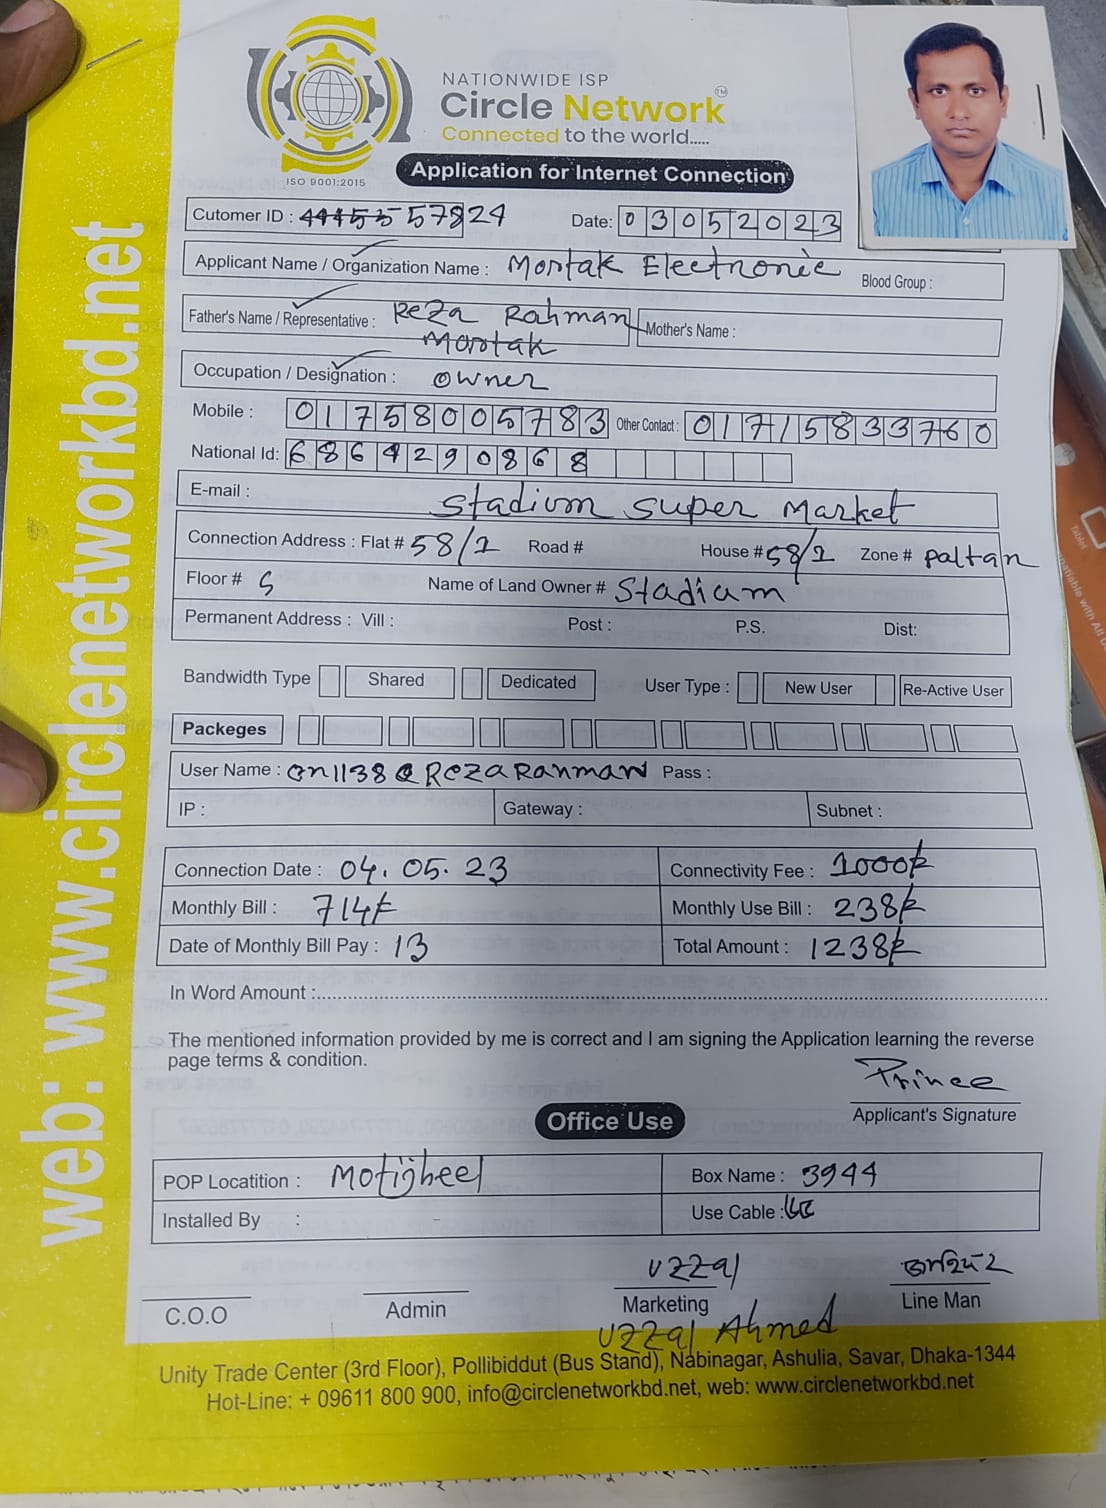 web: www.circlenetworkbd.net
NATIONWIDE ISP
Circle Network TM
Connected to the world.....
ISO 9001:2015
Application for Internet Connection
Cutomer ID : 57824
Date: 03052023
Applicant Name / Organization Name : Mortak Electronic
Blood Group :
Father's Name / Representative : Reza Rahman
Mortak
Mother's Name :
Occupation / Designation : Owner
Mobile : 01758005783 Other Contact : 01715833760
National Id: 6864290868
E-mail :
Stadium Super Market
Connection Address : Flat # 58/1 Road # House # 58/1 Zone # Paltan
Floor # 5 Name of Land Owner # Stadium
Permanent Address : Vill : Post : P.S. Dist:
Bandwidth Type Shared Dedicated User Type : New User Re-Active User
Packeges
User Name : cn1138@RezaRahman Pass :
IP : Gateway : Subnet :
Connection Date : 04.05.23 Connectivity Fee : 1000/-
Monthly Bill : 714/- Monthly Use Bill : 238/-
Date of Monthly Bill Pay : 13 Total Amount : 1238/-
In Word Amount :
The mentioned information provided by me is correct and I am signing the Application learning the reverse
page terms & condition.
Prince
Applicant's Signature
Office Use
POP Locatition : Motijheel Box Name : 3944
Installed By : Use Cable :
Uzzal
C.O.O Admin Marketing Line Man
Uzzal Ahmed
Unity Trade Center (3rd Floor), Pollibiddut (Bus Stand), Nabinagar, Ashulia, Savar, Dhaka-1344
Hot-Line: + 09611 800 900, info@circlenetworkbd.net, web: www.circlenetworkbd.net